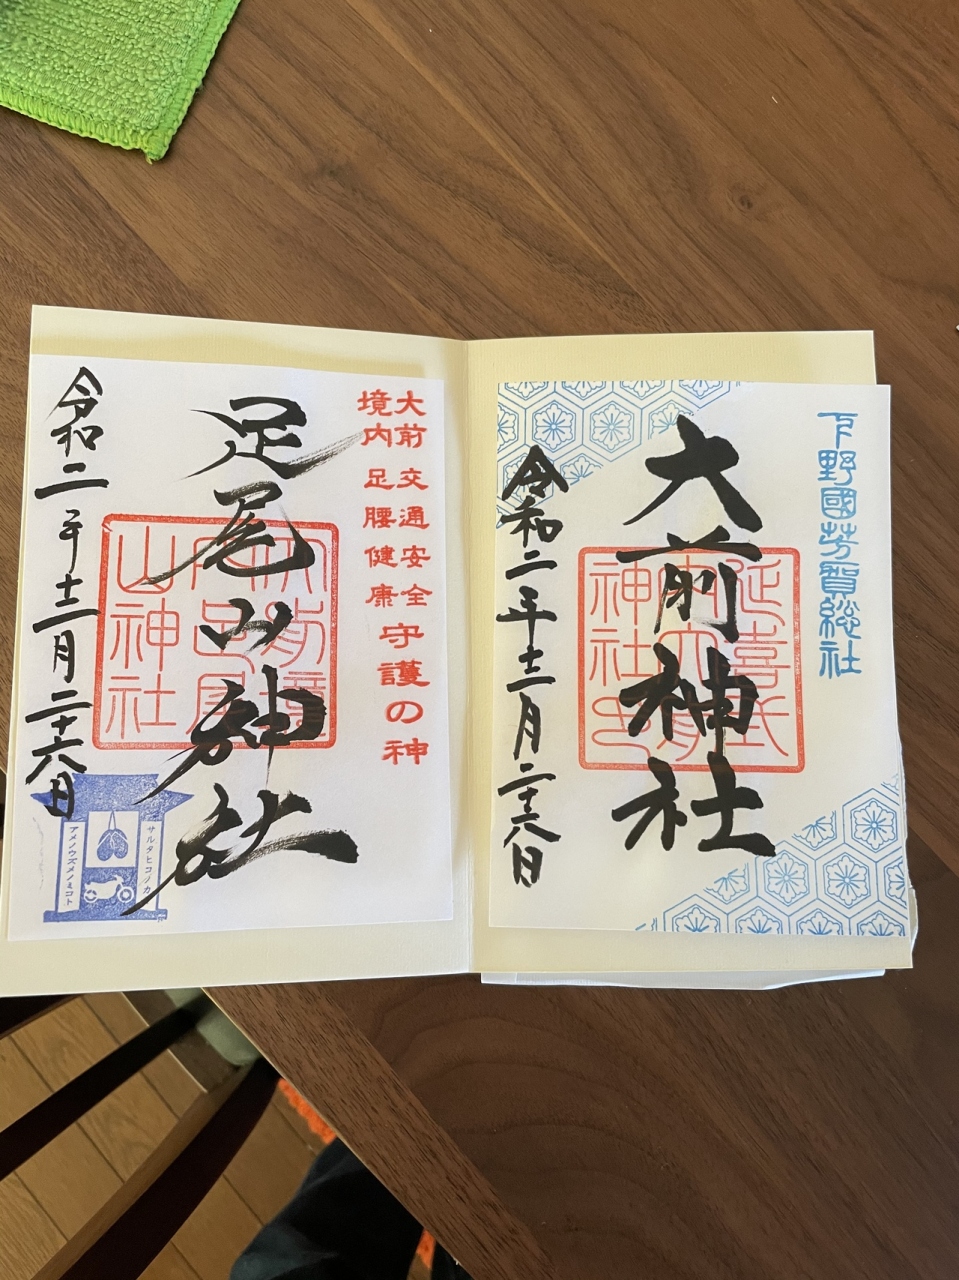 下野國芳賀総社
大前神社
延喜式
内大前
神社之印
令和二年十二月二十六日
大前 交通安全
境内 足腰健康
守護の神
足尾山神社
大前境
内足尾
山神社
令和二年十二月二十六日
サルタヒコノカミ
アメノウズメノミコト